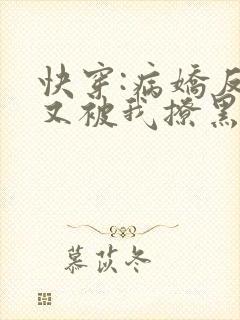 快穿:病娇反
又被我撩黑
慕苡冬